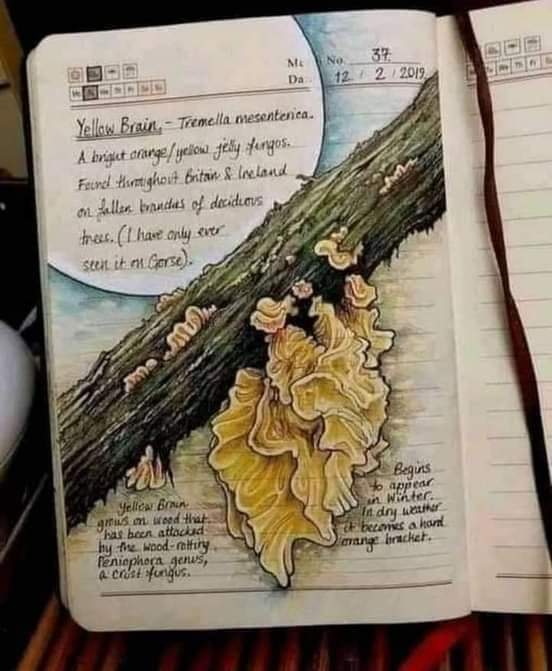 No. 37
Da 12 / 2 / 2019
Yellow Brain. - Tremella mesenterica.
A bright orange/yellow jelly fungos.
Found throughout Britain & Ireland
on fallen branches of decidious
trees. (I have only ever
seen it on Gorse).
Yellow Brain
grows on wood that
has been attacked
by the wood-rotting
Peniophora genus,
a crust fungus.
Begins
to appear
in Winter.
In dry weather
it becomes a hard
orange bracket.